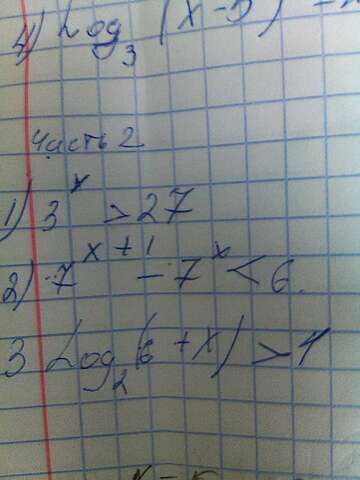 4) Log₃ (x-5)
Часть 2
1) 3ˣ > 27
2) 7ˣ⁺¹ - 7ˣ < 6
3 Log₂(6 + x) > 1